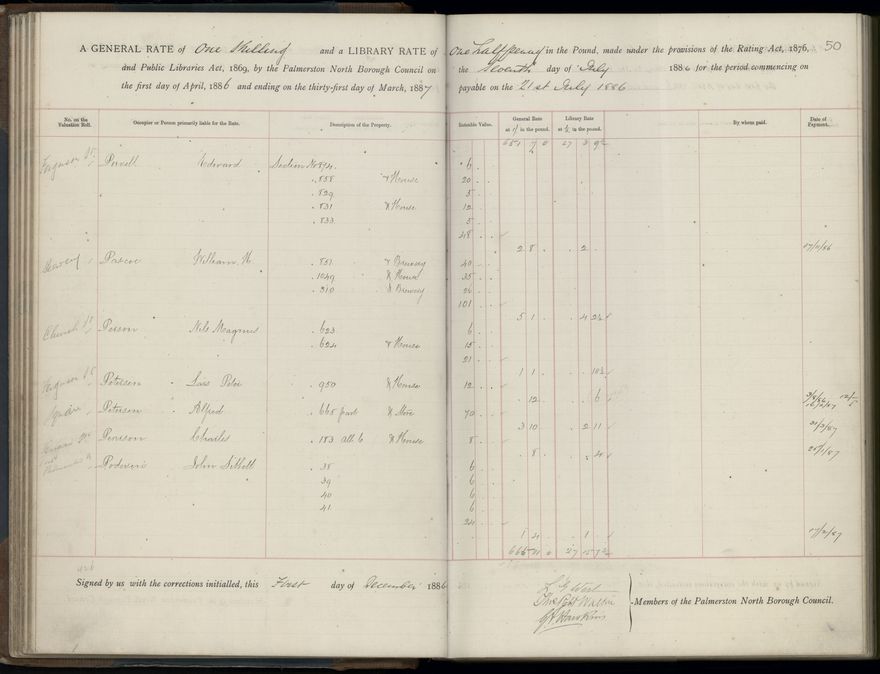 A GENERAL RATE of One Shilling and a LIBRARY RATE of One halfpenny in the Pound, made under the provisions of the Rating Act, 1876, 50
and Public Libraries Act, 1869, by the Palmerston North Borough Council on the Seventh day of July 1886 for the period commencing on
the first day of April, 1886 and ending on the thirty-first day of March, 1887 payable on the 21st July 1886
No. on the Valuation Roll. Occupier or Person primarily liable for the Rate. Description of the Property. Rateable Value. General Rate at 1/ in the pound. Library Rate at ½ in the pound. By whom paid. Date of Payment.
Ferguson St. Powell Edward Section No 874 6
858 & House 20
829 5
831 & House 12
833 5
48
2 8 2
Pascoe William H. 851 & Brewery 40
1049 & House 35
310 & Brewery 26
101
5 1 4 2½
Church St Person Nils Magnus 623 6
624 & House 15
21
1 1 10½
Ferguson St Peterson Lars Peter 950 & House 12
12 6
Square Peterson Alfred 665 part & Store 70
3 10 2 11 21/2/87
Penison Charles 183 all 6 & House 8
8 4
John 38 6
39 6
40 6
41 6
24
1 4 1
Signed by us with the corrections initialled, this First day of December 1886
Members of the Palmerston North Borough Council.